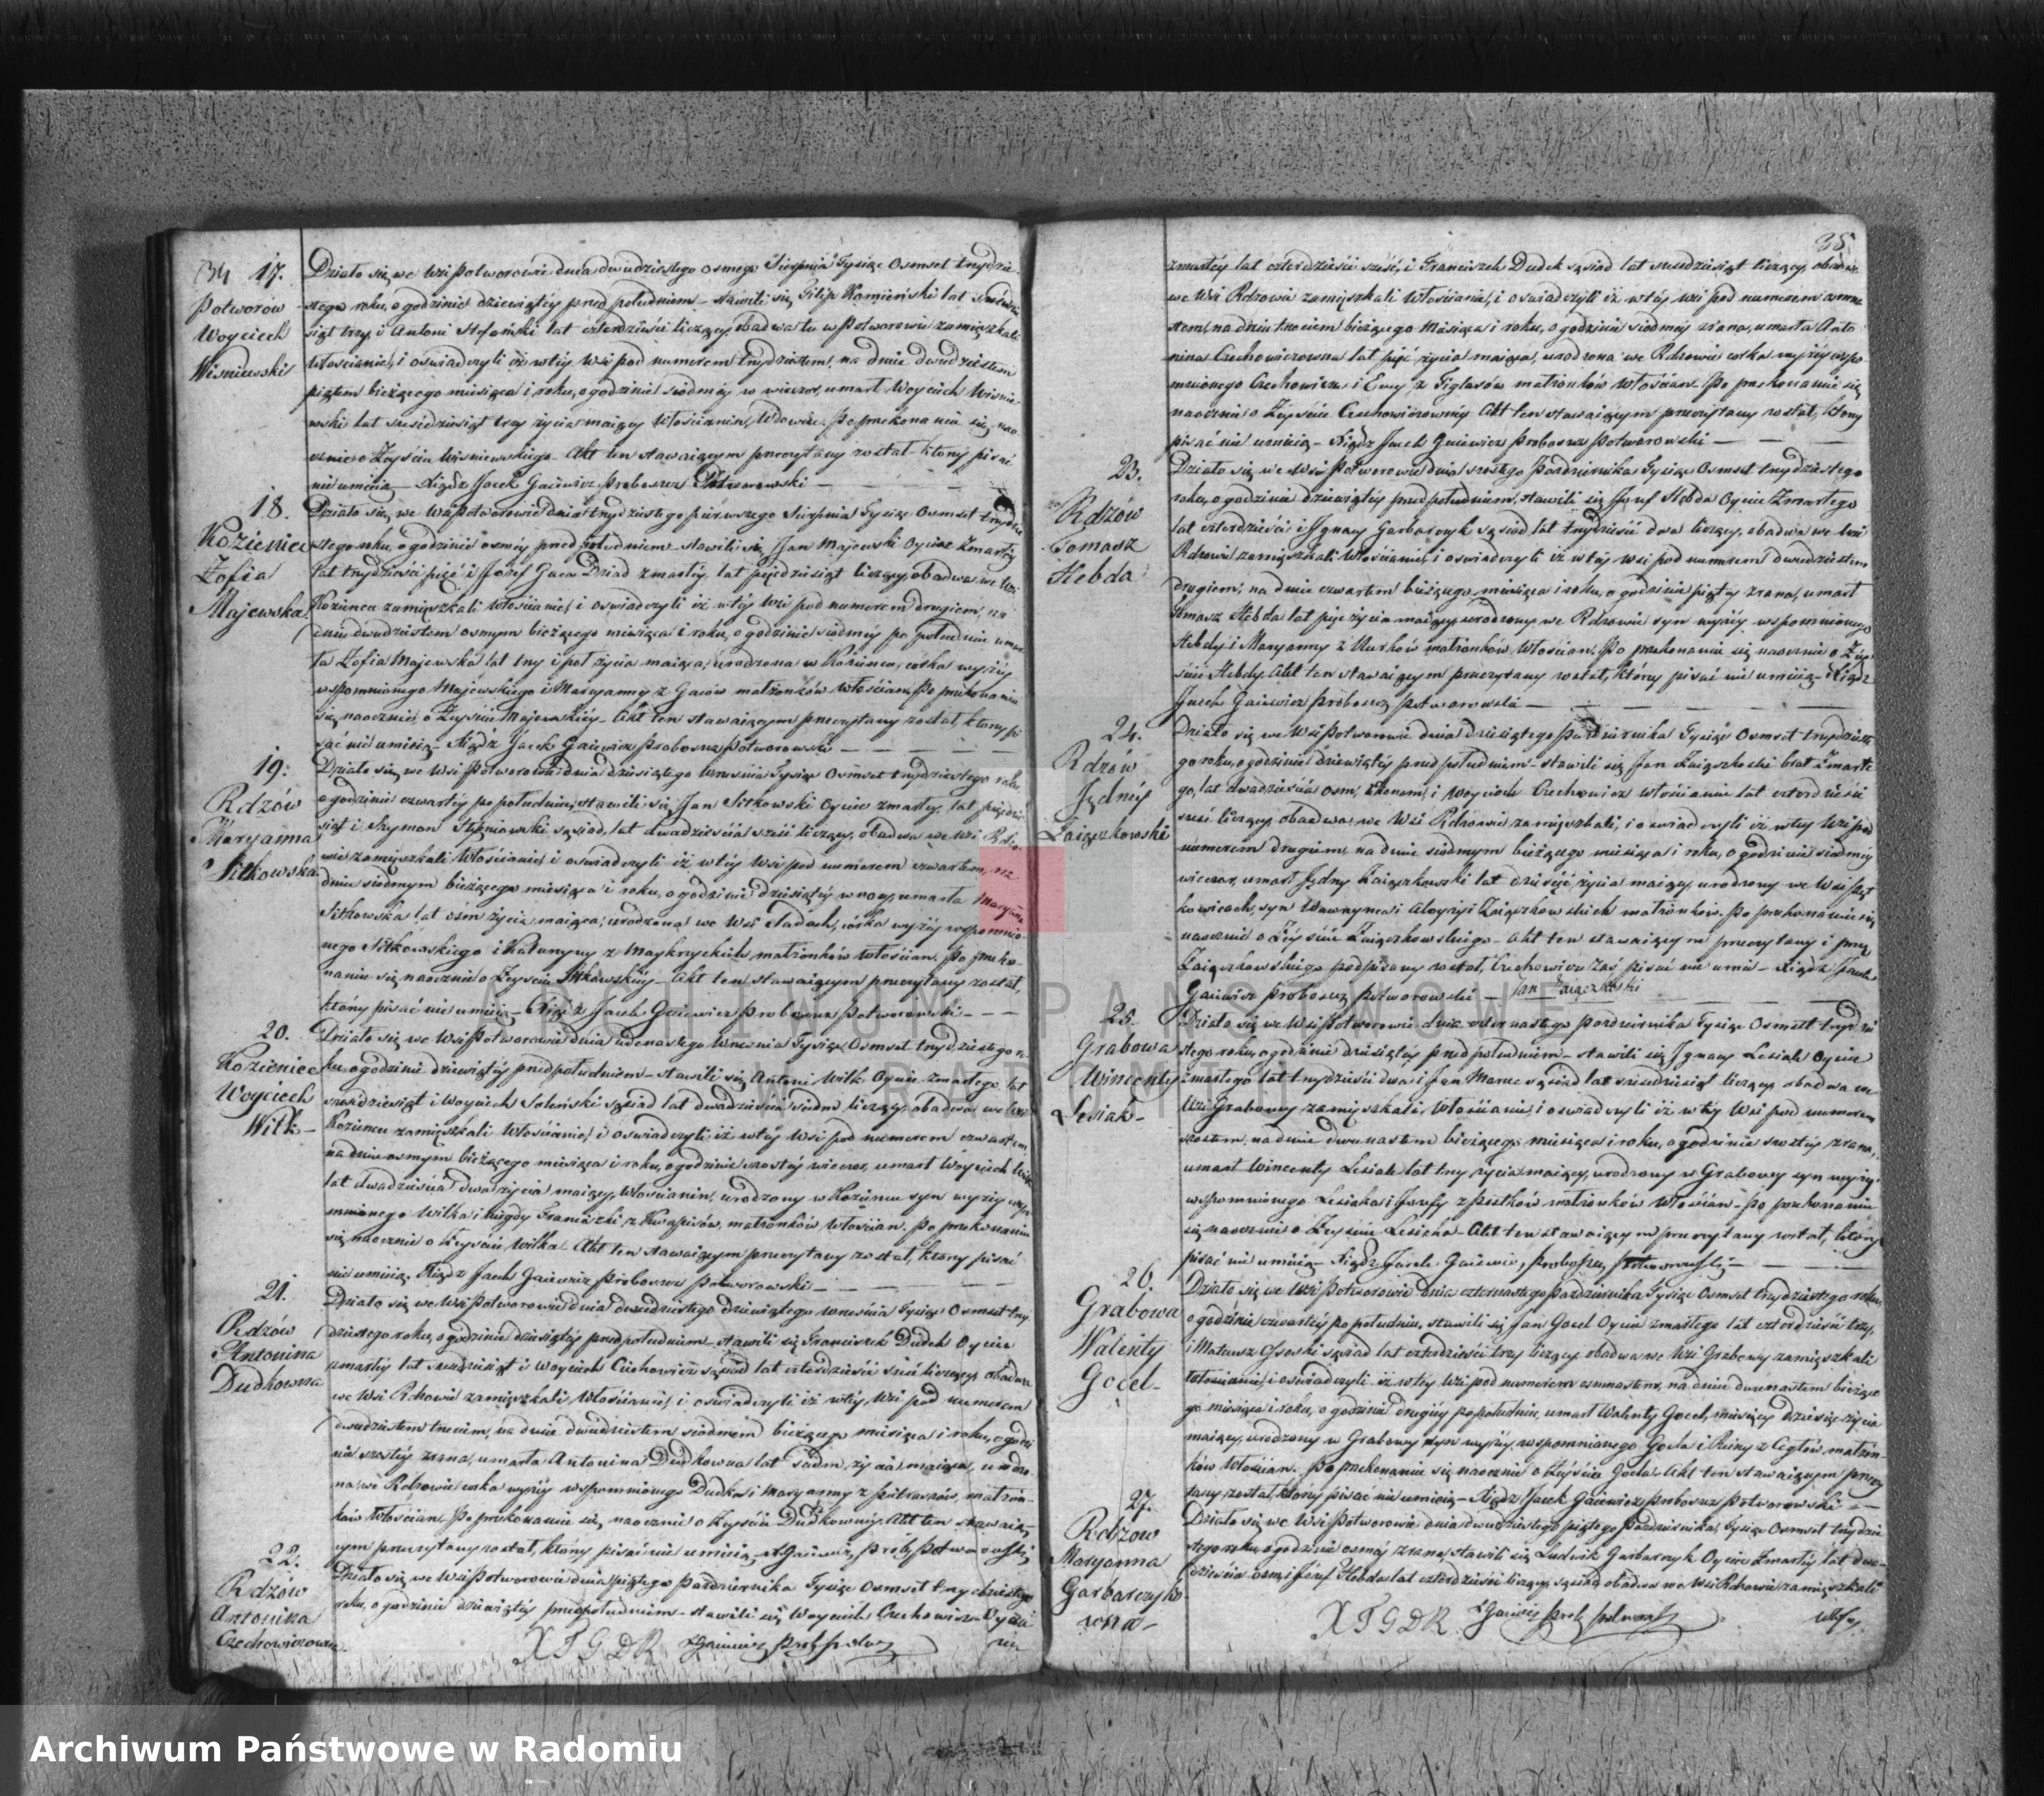 34 17.
Potworów
Woyciech
Wisniewski
Działo się we Wsi Potworowie dnia dwudziestego osmego Sierpnia Tysiąc Osmset trzydzie-
stego roku, o godzinie dziewiątey przed południem – stawili się Filip Kamieński lat
siąt trzy, i Antoni Stefański lat czterdzieści liczący obadwa tu w Potworowie zamięszkali
Włościanie, i oswiadczyli iż w tey Wsi pod numerem trzydziestem, na dniu dwudziestem
piątem bieżącego miesiąca i roku, o godzinie siodmey w wieczor, umarł Woyciech Wisnie-
wski lat sześćdziesiąt trzy życia maiący Włościanin, Wdowiec. Po przekonaniu się nao-
cznie o Zeyściu Wisniewskiego – Akt ten stawaiącym przeczytany został który pisać
nie umieią – Xiądz Jacek Gaiewicz Proboszcz Potworowski –
18.
Kozieniec
Zofia
Majewska
Działo się we Wsi Potworowie dnia trzydziestego pierwszego Sierpnia Tysiąc Osmset trzydzie
stego roku, o godzinie osmey przed południem – stawili się Jan Majewski Oyciec Zmarłey
lat trzydzieści pięć i Jozef Gaca Dziad zmarłey, lat pięćdziesiąt liczący, obadwa we Wsi
Kozieńcu zamięszkali Włościanie, i oswiadczyli iż w tey Wsi pod numerem drugiem, na
dniu dwudziestem osmym bieżącego miesiąca i roku, o godzinie siodmey po południu umar
ła Zofia Majewska lat trzy i poł życia maiąca, urodzona w Kozieńcu, corka wyżey
wspomnionego Majewskiego i Maryanny z Gaców małżonków Włościan. Po przekonaniu
się naocznie o Zeyściu Majewskiey – Akt ten stawaiącym przeczytany został, ktory pi
sać nie umieią – Xiądz Jacek Gaiewicz Proboszcz Potworowski –
19.
Rdzów
Maryanna
Sitkowska
Działo się we Wsi Potworowie dnia dziesiątego wrzesnia Tysiąc Osmset trzydziestego roku,
o godzinie czwartey po południu, stawili się Jan Sitkowski Oyciec zmarłey, lat pięćdzie
siąt i Szymon Stępniewski sąsiad, lat dwadzieścia sześć liczący, obadwa we wsi Rdzo-
wie zamięszkali Włościanie, i oswiadczyli iż w tey Wsi pod numerem czwartem, na
dniu siodmym bieżącego miesiąca i roku, o godzinie dziesiątey w nocy, umarła Maryanna
Sitkowska lat ośm życia maiąca, urodzona we Wsi Sadach, corka wyżey wspomnio-
nego Sitkowskiego i Katarzyny z małżonków Włościan. Po przeko-
naniu się naocznie o Zeyściu Sitkowskiey – Akt ten stawaiącym przeczytany został,
który pisać nie umieią – Xiądz Jacek Gaiewicz Proboszcz Potworowski –
20.
Kozieniec
Woyciech
Wilk –
Działo się we Wsi Potworowie dnia iedenastego Wrzesnia Tysiąc Osmset trzydziestego ro-
ku, o godzinie dziewiątey przed południem – stawili się Antoni Wilk Oyciec Zmarłego, lat
sześćdziesiąt i Woyciech Soleński sąsiad lat dwadzieścia siedm liczący, obadwa we Wsi
Kozieńcu zamięszkali Włościanie, i oswiadczyli iż w tey Wsi pod numerem czwartem,
na dniu osmym bieżącego miesiąca i roku, o godzinie szostey wieczor, umarł Woyciech Wilk
lat dwadzieścia dwa życia maiący, Włościanin, urodzony w Kozieńcu syn wyżey wspo
mnionego Wilka i niegdy Franciszki z Kwapisów, małżonków Włościan. Po przekonaniu
się naocznie o Zeyściu Wilka – Akt ten stawaiącym przeczytany został, który pisać
nie umieią. Xiądz Jacek Gaiewicz Proboszcz Potworowski –
21.
Rdzów
Antonina
Dudkowna
Działo się we Wsi Potworowie dnia dwudziestego dziewiątego wrzesnia Tysiąc Osmset trzy
dziestego roku, o godzinie dziesiątey przed południem – stawili się Franciszek Dudek Oyciec
zmarłey lat sześćdziesiąt i Woyciech Ciechowicz sąsiad lat czterdzieści sześć liczący, obadwa
we Wsi Rdzowie zamięszkali Włościanie, i oswiadczyli iż w tey Wsi pod numerem
dwudziestem trzeciem, na dniu dwudziestem siodmem bieżącego miesiąca i roku, o godzi
nie szostey zrana, umarła Antonina Dudkowna lat siedm życia maiąca, urodzo
na we Rdzowie corka wyżey wspomnionego Dudka i Maryanny z Pietraszów, małżon-
ków Włościan. Po przekonaniu się naocznie o Zeyściu Dudkowney. Akt ten stawaią-
cym przeczytany został, który pisać nie umieią – X Gaiewicz, Prob. Potworowski
22.
Rdzów
Antonina
Czechowiczowna
Działo się we Wsi Potworowie dnia piątego Pazdziernika Tysiąc Osmset trzydziestego
roku, o godzinie dziewiątey przed południem – stawili się Woyciech Czechowicz Oyciec
X J G D R XGaiewicz Prob. Potwor.
35.
zmarłey lat czterdzieści sześć, i Franciszek Dudek sąsiad lat sześćdziesiąt liczący, obadwa
we Wsi Rdzowie zamięszkali Włościanie, i oswiadczyli iż w tey wsi pod numerem osmna
stem, na dniu trzeciem bieżącego Miesiąca i roku, o godzinie siodmey zrana, umarła Anto
nina Czechowiczowna lat pięć życia maiąca, urodzona we Rdzowie corka wyżey wspo
mnionego Czechowicza i Ewy z Figlasów małżonków Włościan – Po przekonaniu się
naocznie o Zeyściu Czechowiczowney Akt ten stawaiącym przeczytany został, który
pisać nie umieią – Xiądz Jacek Gaiewicz Proboszcz Potworowski –
23.
Rdzów
Tomasz
Hebda
Działo się we Wsi Potworowie dnia szostego Pazdziernika Tysiąc Osmset trzydziestego
roku, o godzinie dziewiątey przed południem, stawili się Jozef Hebda Oyciec Zmarłego
lat czterdzieści i Jgnacy Garbarczyk sąsiad lat trzydzieści dwa liczący, obadwa we Wsi
Rdzowie zamięszkali Włościanie, i oswiadczyli iż w tey Wsi pod numerem dwudziestem
drugiem, na dniu czwartem bieżącego miesiąca i roku, o godzinie piątey zrana, umarł
Tomasz Hebda lat pięć życia maiący, urodzony we Rdzowie syn wyżey wspomnionego
Hebdy i Maryanny z Kurków małżonków Włościan. Po przekonaniu się naocznie o Zey-
ściu Hebdy Akt ten stawaiącym przeczytany został, który pisać nie umieią – Xiądz
Jacek Gaiewicz Proboszcz Potworowski –
24.
Rdzów
Jędrzey
Zaiączkowski
Działo się we Wsi Potworowie dnia dziesiątego Pazdziernika Tysiąc Osmset trzydzieste
go roku, o godzinie dziewiątey przed południem – stawili się Jan Zaiączkoski brat Zmarłe
go, lat dwadzieścia osm, Ekonom, i Woyciech Czechowicz włościanin lat czterdzieści
sześć liczący, obadwa we Wsi Rdzowie zamięszkali, i oswiadczyli iż w tey Wsi pod
numerem drugiem, na dniu siodmym bieżącego miesiąca i roku, o godzinie siodmey
wieczor, umarł Jędrzey Zaiączkowski lat dziesięć życia maiący, urodzony we Wsi
kowicach, syn Wawrzyńca i Aloyzyi Zaiączkowskich małżonków. Po przekonaniu się
naocznie o Zeyściu Zaiączkowskiego – Akt ten stawaiącym przeczytany i przez
Zaiączkowskiego podpisany został, Czechowicz zaś pisać nie umie – Xiądz Jacek
Gaiewicz Proboszcz Potworowski – Jan Zaiączkoski
25.
Grabowa
Wincenty
Lesiak –
Działo się we Wsi Potworowie dnia czternastego Pazdziernika Tysiąc Osmset trzydzie
stego roku, o godzinie dziesiątey przed południem – stawili się Jgnacy Lesiak Oyciec
zmarłego lat trzydzieści dwa i Jan Maruc sąsiad lat sześćdziesiąt liczący obadwa we
Wsi Grabowy zamięszkali, Włościanie, i oswiadczyli iż w tey Wsi pod numerem
szostem, na dniu dwunastem bieżącego miesiąca i roku, o godzinie szostey zrana,
umarł Wincenty Lesiak lat trzy życia maiący, urodzony w Grabowy syn wyżey
wspomnionego Lesiaka i Jozefy z małżonków Włościan – Po przekonaniu
się naocznie o Zeyściu Lesiaka – Akt ten stawaiącym przeczytany został, który
pisać nie umieią – Xiądz Jacek Gaiewicz, Proboszcz Potworowski –
26.
Grabowa
Walenty
Gocel –
Działo się we Wsi Potworowie dnia czternastego Pazdziernika Tysiąc Osmset trzydziestego roku,
o godzinie czwartey po południu, stawili się Jan Gocel Oyciec zmarłego lat czterdzieści trzy,
i Mateusz Ososki sąsiad lat czterdzieści trzy liczący obadwa we Wsi Grabowy zamięszkali
Włościanie, i oswiadczyli iż w tey Wsi pod numerem osmnastem, na dniu dwunastem bieżące
go miesiąca i roku, o godzinie drugiey po południu, umarł Walenty Gocel, miesięcy dziesięć życia
maiący, urodzony w Grabowy syn wyżey wspomnionego Gocla i z Ceglów małżon-
ków Włościan. Po przekonaniu się naocznie o Zeyściu Gocla – Akt ten stawaiącym przeczy
tany został, który pisać nie umieią – Xiądz Jacek Gaiewicz Proboszcz Potworowski –
27.
Rdzow
Maryanna
Garbarczyko
wna –
Działo się we Wsi Potworowie dnia dwudziestego piątego Pazdziernika, Tysiąc Osmset trzydzie
stego roku, o godzinie osmey zrana, stawili się Ludwik Garbarczyk Oyciec Zmarłey lat dwa-
dzieścia osm, i Jozef Hebda lat czterdzieści liczący, sąsiad obadwa we Wsi Rdzowie zamięszkali
X J G D R XGaiewicz Prob. Potworowski
ARCHIWUM PAŃSTWOWE
W RADOMIU
Archiwum Państwowe w Radomiu